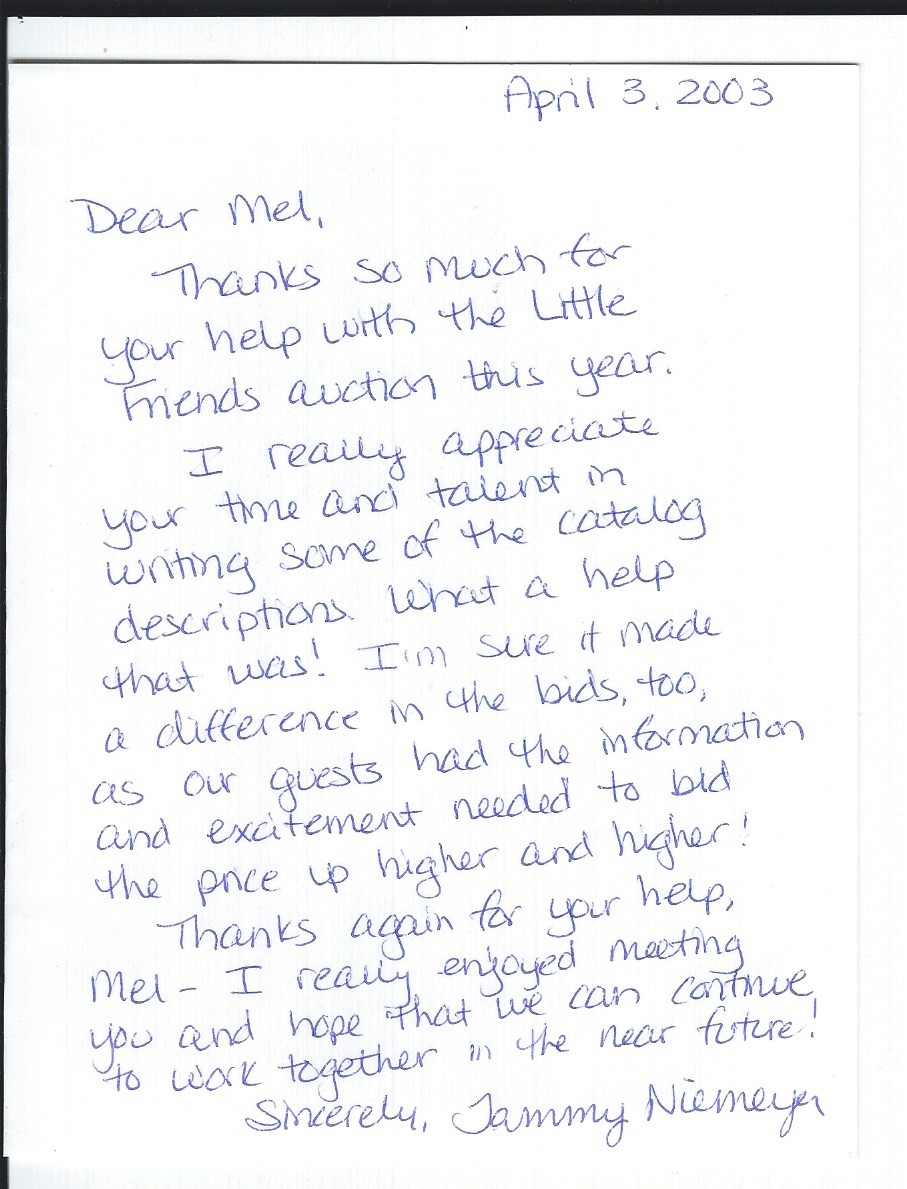 April 3, 2003
Dear Mel,
Thanks so much for
your help with the Little
Friends auction this year.
I really appreciate
your time and talent in
writing some of the catalog
descriptions. What a help
that was! I'm sure it made
a difference in the bids, too,
as our guests had the information
and excitement needed to bid
the price up higher and higher!
Thanks again for your help,
Mel - I really enjoyed meeting
you and hope that we can continue
to work together in the near future!
Sincerely, Tammy Niemeyer